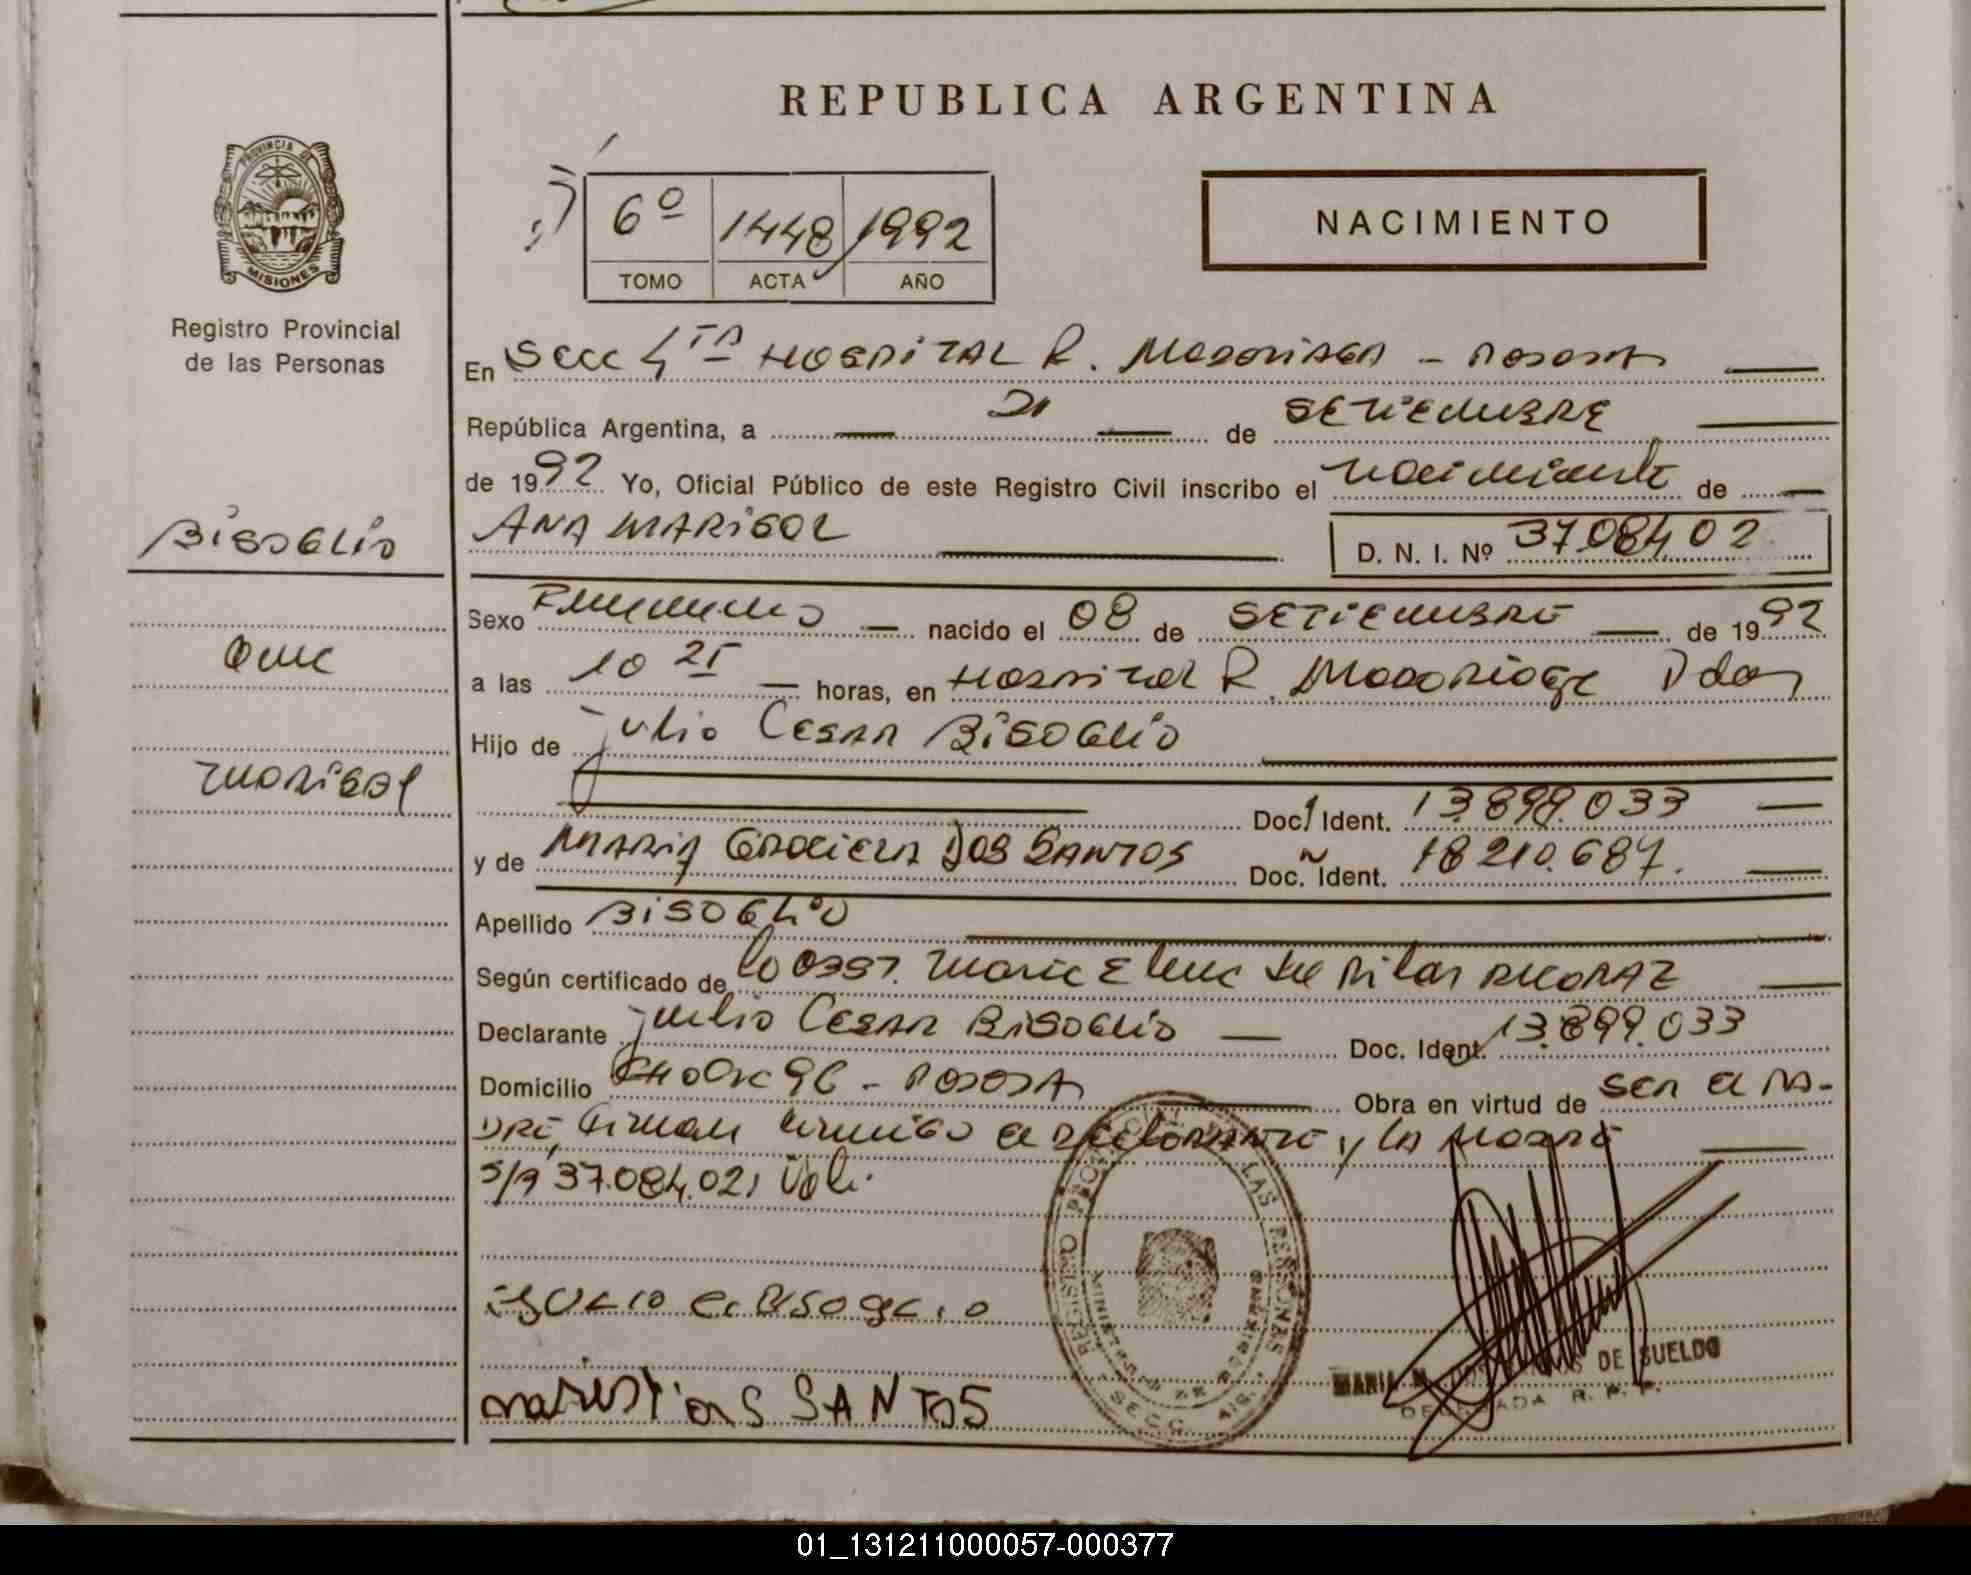 REPUBLICA ARGENTINA
PROVINCIA DE
MISIONES
Registro Provincial
de las Personas
6º 1448 1992
TOMO ACTA AÑO
NACIMIENTO
En Secc 4TA HOSPITAL R. Madariaga - Posadas
República Argentina, a 21 de SETIEMBRE
de 1992 Yo, Oficial Público de este Registro Civil inscribo el nacimiento de
BISOGLIO
ANA MARISOL D. N. I. Nº 37.084.02
Sexo Femenino nacido el 08 de SETIEMBRE de 1992
Ana
a las 10 25 horas, en Hospital R. Madariaga Pdas
Hijo de Julio Cesar BISOGLIO
Marisol
Doc. Ident. 13.899.033
y de MARIA Graciela Dos SANTOS Doc. Ident. 18.210.687.
Apellido BISOGLIO
Según certificado de la Obst. Maria Elena del Pilar
Declarante Julio Cesar BISOGLIO Doc. Ident. 13.899.033
Domicilio 96 - Posadas Obra en virtud de ser el PA-
DRE, Firman conmigo el declarante y la Madre
S/R 37.084.021 Vale.
MARIA DE SUELDO
DELEGADA R. P. P.
REGISTRO PROV. DE LAS PERSONAS
MINISTERIO DE GOBIERNO
SECC. 4ta.
SANTOS
01_131211000057-000377